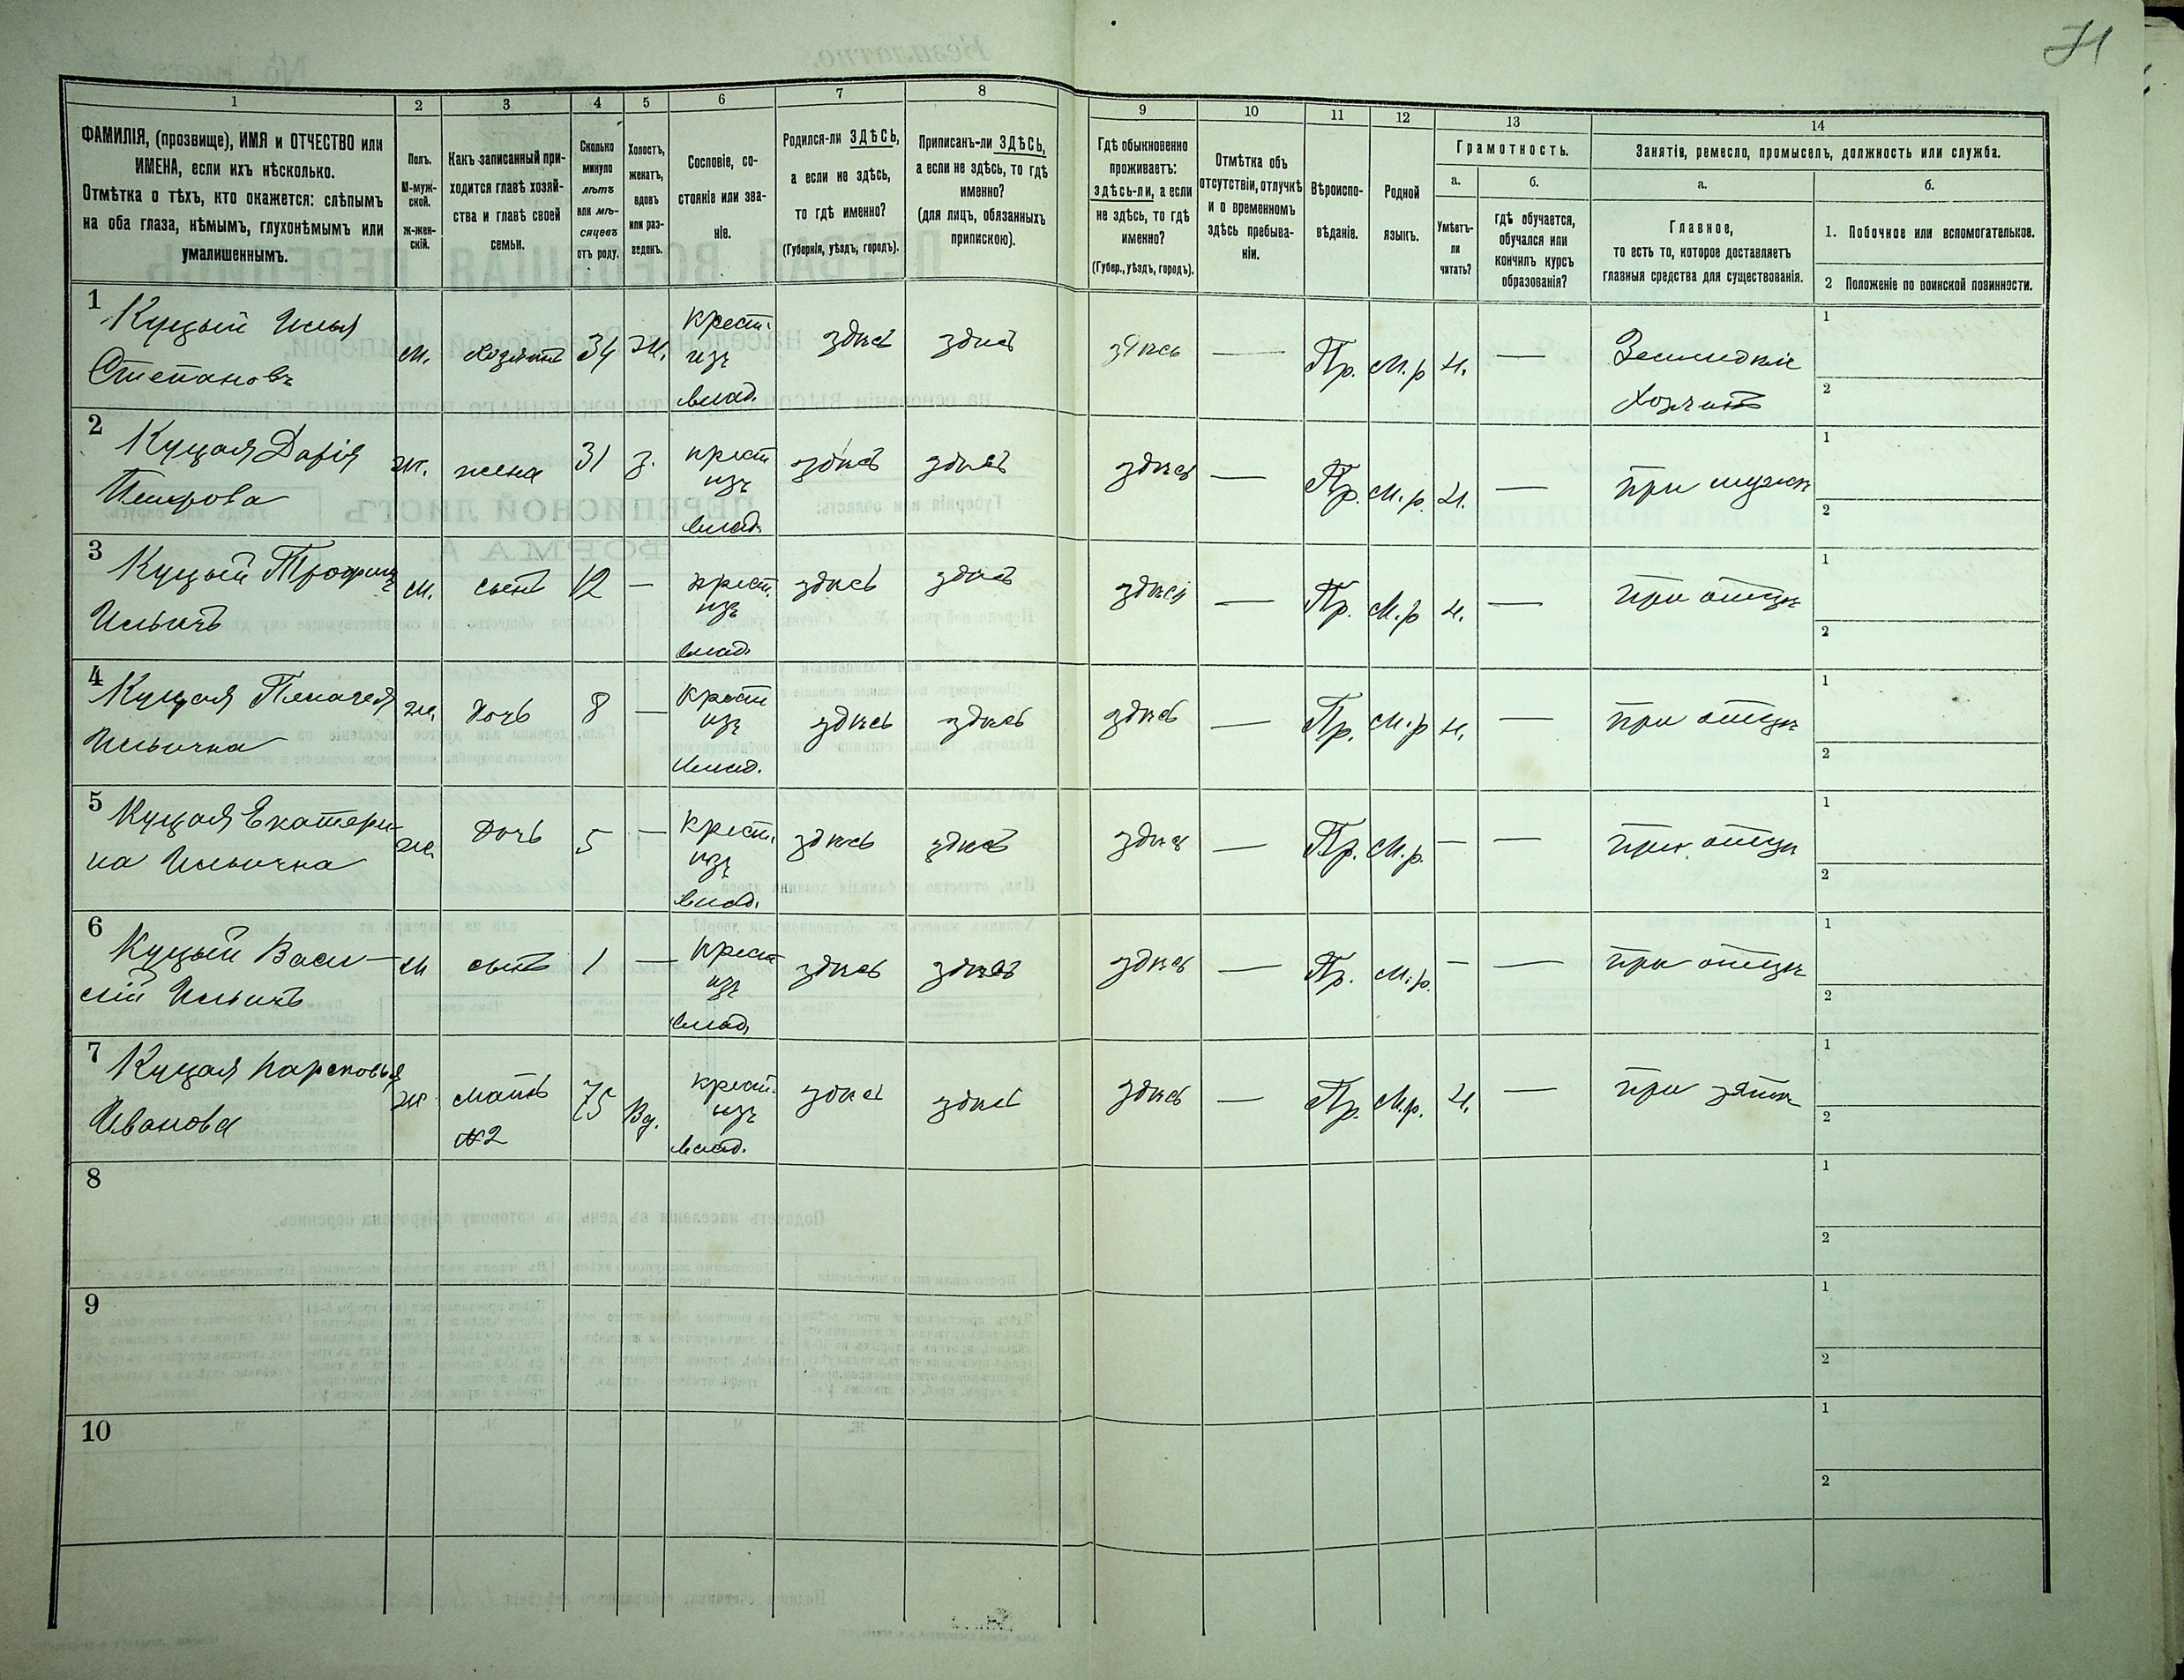 71
1 2 3 4 5 6 7 8 9 10 11 12 13 14
ФАМИЛІЯ, (прозвище), ИМЯ и ОТЧЕСТВО или
ИМЕНА, если ихъ нѣсколько.
Отмѣтка о тѣхъ, кто окажется: слѣпымъ
на оба глаза, нѣмымъ, глухонѣмымъ или
умалишеннымъ.
Полъ.
М-муж-
ской.
Ж-жен-
скій.
Какъ записанный при-
ходится главѣ хозяй-
ства и главѣ своей
семьи.
Сколько
минуло
лѣтъ
или мѣ-
сяцевъ
отъ роду.
Холостъ,
женатъ,
вдовъ
или раз-
веденъ.
Сословіе, со-
стояніе или зва-
ніе.
Родился-ли ЗДѢСЬ,
а если не здѣсь,
то гдѣ именно?
(Губернія, уѣздъ, городъ).
Приписанъ-ли ЗДѢСЬ,
а если не здѣсь, то гдѣ
именно?
(для лицъ, обязанныхъ
припискою).
Гдѣ обыкновенно
проживаетъ:
здѣсь-ли, а если
не здѣсь, то гдѣ
именно?
(Губер., уѣздъ, городъ).
Отмѣтка объ
отсутствіи, отлучкѣ
и о временномъ
здѣсь пребыва-
ніи.
Вѣроиспо-
вѣданіе.
Родной
языкъ.
Грамотность.
а.
Умѣетъ-
ли
читать?
б.
гдѣ обучается,
обучался или
кончилъ курсъ
образованія?
Занятіе, ремесло, промыселъ, должность или служба.
а.
Главное,
то есть то, которое доставляетъ
главныя средства для существованія.
б.
1. Побочное или вспомогательное.
2 Положеніе по воинской повинности.
1 Куцый Илья
Степановъ
м. хозяинъ 34 ж. крест. изъ влад. здѣсь здѣсь здѣсь — Пр. М.р н. — Земледѣл
хозяинъ
1
2
2 Куцая Дарія
Петрова
ж. жена 31 з. крест изъ влад. здѣсь здѣсь здѣсь — Пр. М.р. н. — при мужѣ
1
2
3 Куцый Трофимъ
Ильичъ
м. сынъ 12 — крест. изъ влад. здѣсь здѣсь здѣсь — Пр. М.р н. — при отцѣ
1
2
4 Куцая Пелагея
Ильична
ж. дочь 8 — крест изъ влад. здѣсь здѣсь здѣсь — Пр. М.р н. — при отцѣ
1
2
5 Куцая Екатери-
на Ильична
ж. дочь 5 — крест. изъ влад. здѣсь здѣсь здѣсь — Пр. М.р. — — при отцѣ
1
2
6 Куцый Васи-
лій Ильичъ
м сынъ 1 — крест изъ влад. здѣсь здѣсь здѣсь — Пр. М.р. — — при отцѣ
1
2
7 Куцая Парасковья
Иванова
ж. мать №2 75 вд. крест. изъ влад. здѣсь здѣсь здѣсь — Пр. М.р. н. — при зятѣ
1
2
8
1
2
9
1
2
10
1
2